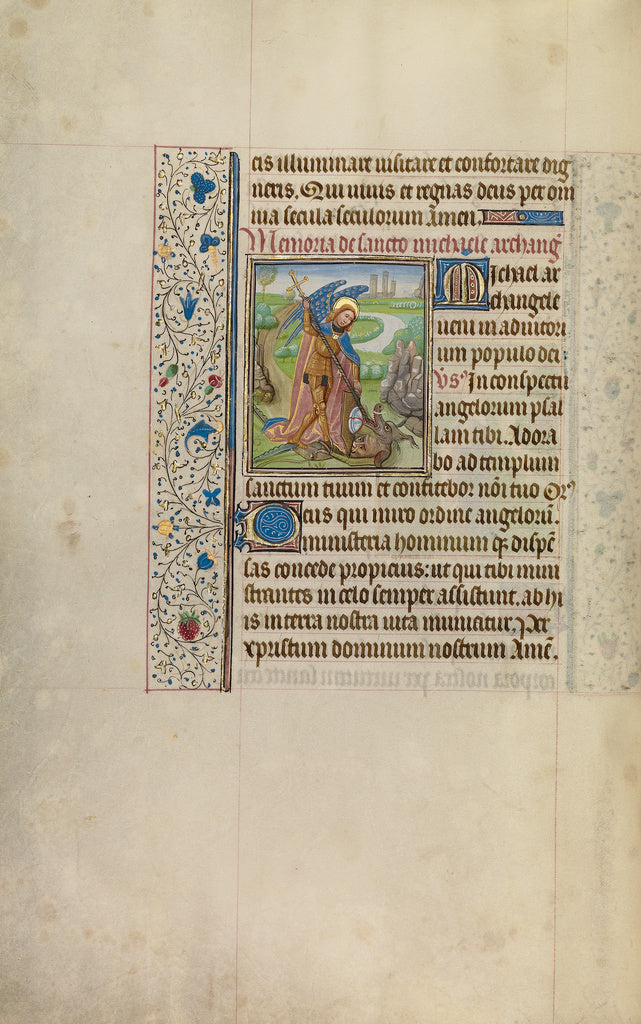 cis illuminare visitare et confortare dig
neris. Qui vivis et regnas deus per om
nia secula seculorum Amen.
Memoria de sancto michaele archang̃
Michael ar
changele
veni in adiutori
um populo dei.
Vs̉ In conspectu
angelorum psal
lam tibi. Adora
bo ad templum
sanctum tuum et confitebor nõi tuo Or̉
Deus qui miro ordine angeloru᷑.
ministeria hominum q̃ dispe᷑
sas concede propicius: ut qui tibi mini
strantes in celo semper assistunt. ab hi
is in terra nostra vita muniatur. Per
xpristum dominum nostrum Ame᷑.